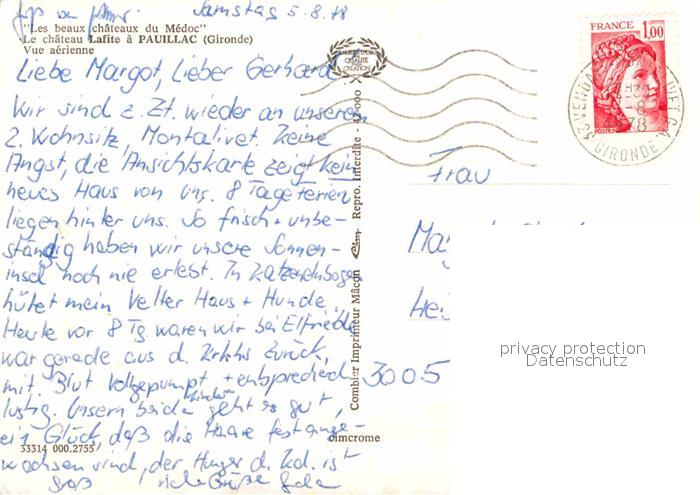 Samstag 5.8.78
"Les beaux châteaux du Médoc"
Le château Lafite à PAUILLAC (Gironde)
Vue aérienne
Liebe Margot, Lieber Gerhard
Wir sind z. Zt. wieder an unserem
2. Wohnsitz, Montalivet. Keine
Angst, die Ansichtskarte zeigt kein
neues Haus von uns. 8 Tage Ferien
liegen hinter uns. So frisch + unbe-
ständig haben wir unsere Sonnen-
insel noch nie erlebt. In Katzenelnbogen
hütet mein Vetter Haus + Hunde.
Heute vor 8 Tg. waren wir bei Elfriede
war gerade aus d. Krkhs zurück,
mit Blut vollgepumpt + entsprechend
lustig. Unsern beiden Kindern geht es gut,
ein Glück, daß die Haare fest ange-
wachsen sind, der Hunger d. Kd. ist
groß viele Grüße
33314 000.2755
Combier Imprimeur Mâcon
Repro. Interdite - 42-000
cimcrome
FRANCE 1,00
POSTES
GIRONDE
78
Frau
3005
privacy protection
Datenschutz